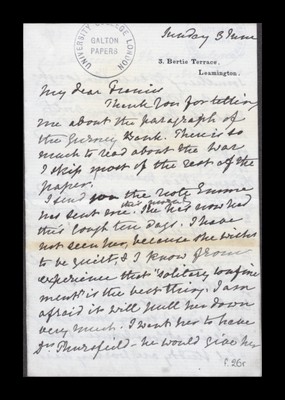 Sunday 3 June
UNIVERSITY COLLEGE LONDON
GALTON
PAPERS
3. Bertie Terrace,
Leamington.
My dear Francis
Thank you for telling
me about the paragraph of
the Gurney Bank. There is so
much to read about the War
I skip most of the rest of the
paper.
I send you the note Emma
has sent me. She has now had
this cough ten days. I have
not seen her, because she wishes
to be quiet, & I know from
experience that solitary confine
ment is the best thing. I am
afraid it will pull her down
very much. I want her to have
Dr Thursfield - he would give her
f. 26r